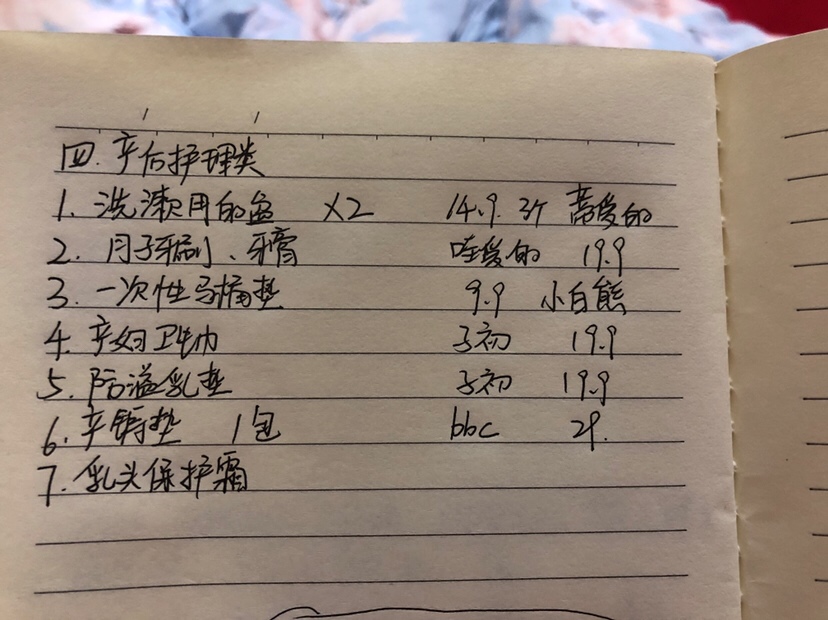 四.产后护理类
1.洗漱用的盆 X2 14.9. 3个 蒂爱的
2.月子牙刷、牙膏 哇爱的 19.9
3.一次性马桶垫 9.9 小白熊
4.产妇卫生巾 子初 19.9
5.防溢乳垫 子初 19.9
6.产褥垫 1包 bbc 29.
7.乳头保护霜